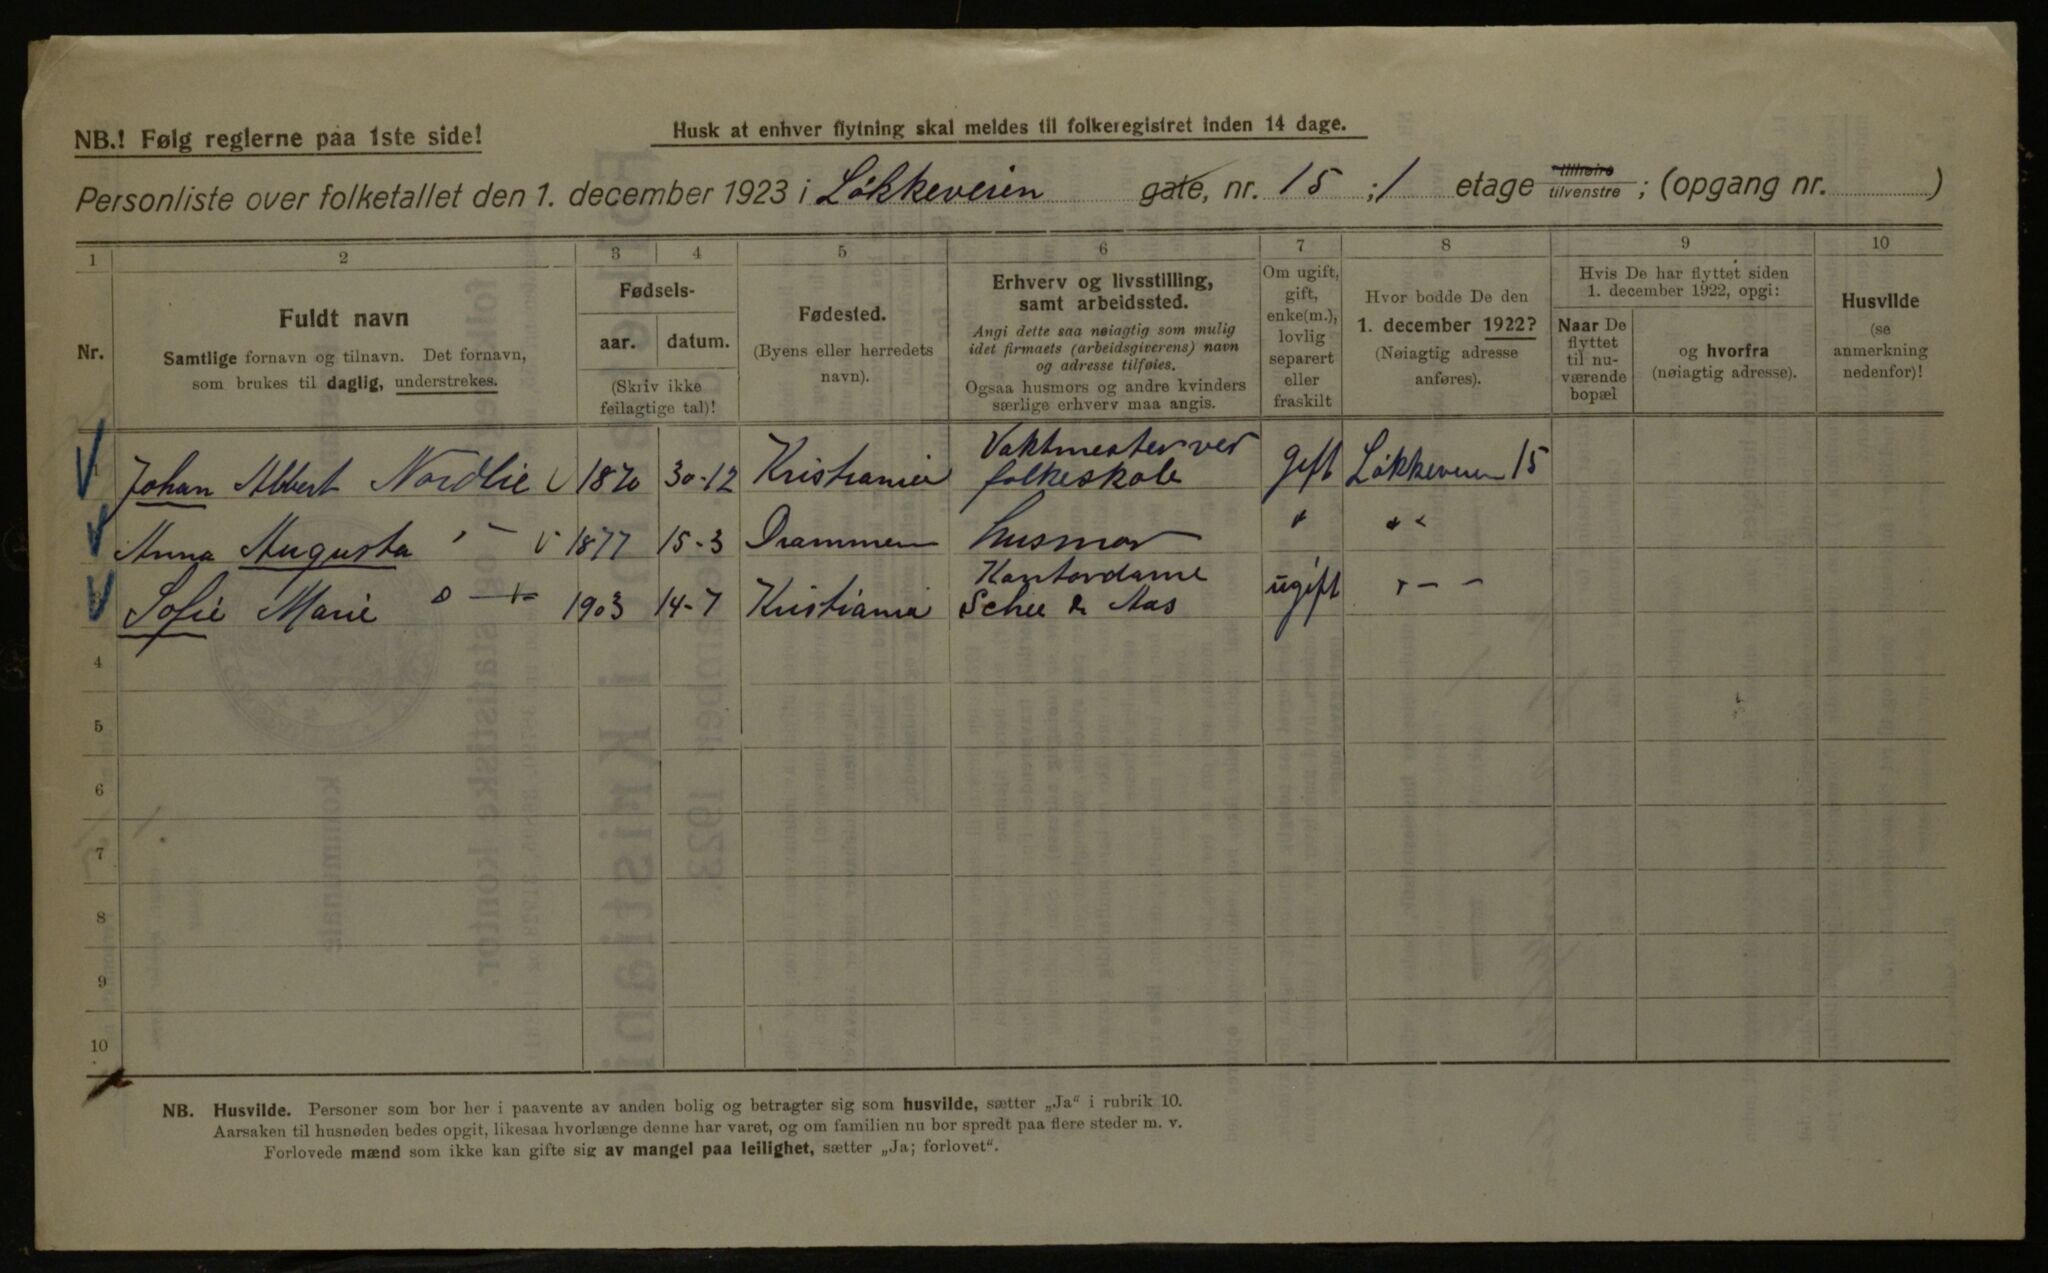 NB.! Følg reglerne paa 1ste side!
Husk at enhver flytning skal meldes til folkeregistret inden 14 dage.
Personliste over folketallet den 1. december 1923 i Løkkeveien gate, nr. 15 ; 1 etage tilhøire tilvenstre ; (opgang nr. )
1 2 3 4 5 6 7 8 9 10
Nr.
Fuldt navn
Samtlige fornavn og tilnavn. Det fornavn,
som brukes til daglig, understrekes.
Fødsels-
aar. datum.
(Skriv ikke
feilagtige tal)!
Fødested.
(Byens eller herredets
navn).
Erhverv og livsstilling,
samt arbeidssted.
Angi dette saa nøiagtig som mulig
idet firmaets (arbeidsgiverens) navn
og adresse tilføies.
Ogsaa husmors og andre kvinders
særlige erhverv maa angis.
Om ugift,
gift,
enke(m.),
lovlig
separert
eller
fraskilt
Hvor bodde De den
1. december 1922?
(Nøiagtig adresse
anføres).
Hvis De har flyttet siden
1. december 1922, opgi:
Naar De
flyttet
til nu-
værende
bopæl
og hvorfra
(nøiagtig adresse).
Husvilde
(se
anmerkning
nedenfor)!
Vaktmester ved
1 Johan Albert Nordlie 1870 30-12 Kristiania folkeskole gift Løkkeveien 15
Anna Augusta " 1877 15-3 Drammen husmor " " "
Kontordame
Sofie Marie 1903 14-7 Kristiania Schee & Aas ugift " - -
4
5
6
7
8
9
10
NB. Husvilde. Personer som bor her i paavente av anden bolig og betragter sig som husvilde, sætter „Ja“ i rubrik 10.
Aarsaken til husnøden bedes opgit, likesaa hvorlænge denne har varet, og om familien nu bor spredt paa flere steder m. v.
Forlovede mænd som ikke kan gifte sig av mangel paa leilighet, sætter „Ja; forlovet“.